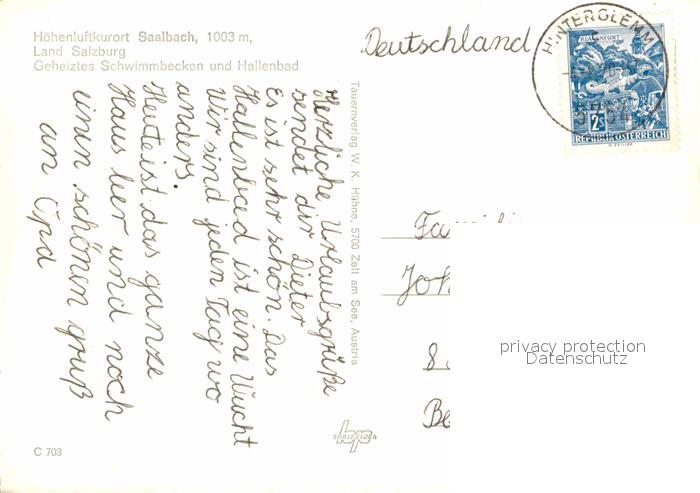 Höhenluftkurort Saalbach, 1003 m,
Land Salzburg
Geheiztes Schwimmbecken und Hallenbad
Herzliche Urlaubsgrüße
sendet dir Dieter
Es ist sehr schön. Das
Hallenbad ist eine Wucht
Wir sind jeden Tag wo
anders.
Heute ist das ganze
Haus leer und noch
einen schönen gruß
an Opa
Tauernverlag W. K. Hühne, 5700 Zell am See, Austria
Deutschland
HINTERGLEMM
KLAGENFURT
2S
REPUBLIK ÖSTERREICH
Fa
Joh
8
Be
privacy protection
Datenschutz
SAALFELDEN
C 703